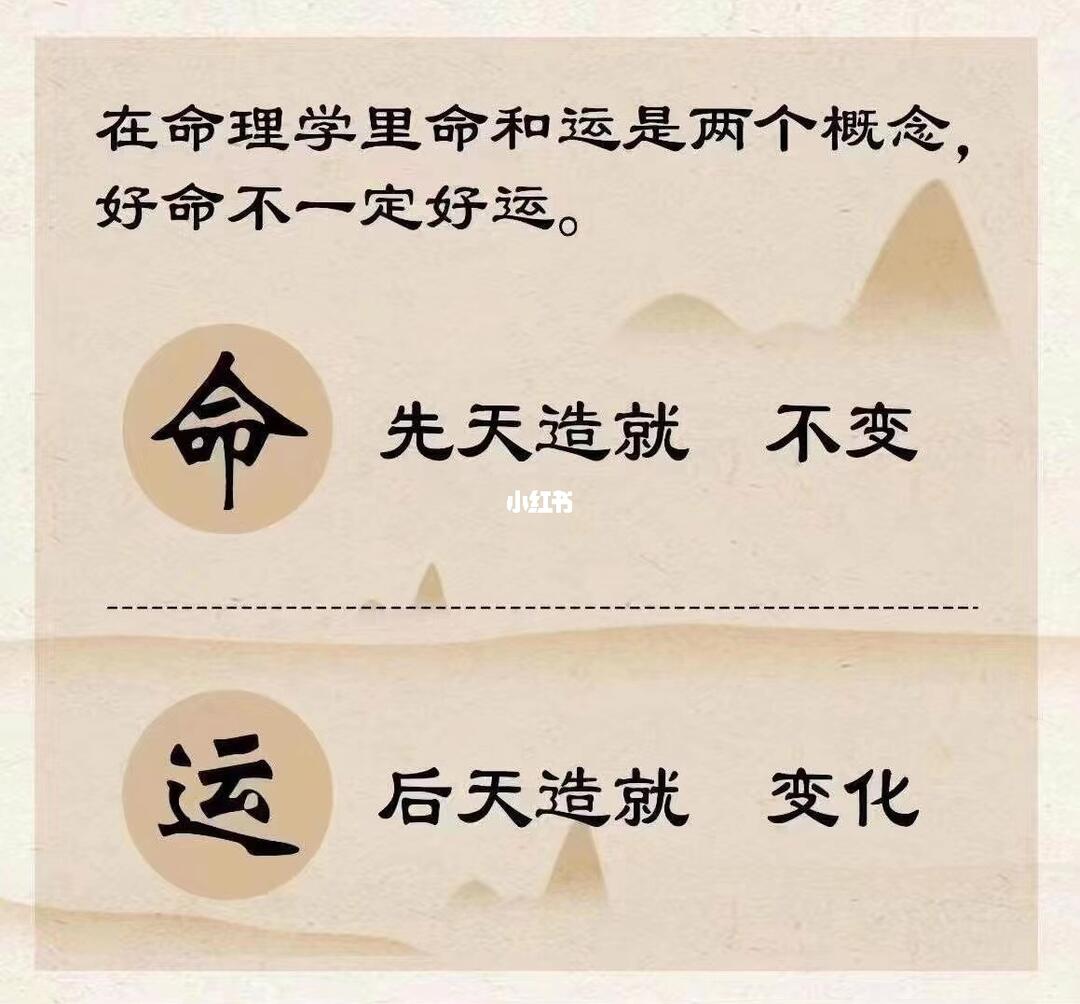 在命理学里命和运是两个概念，
好命不一定好运。
命 先天造就 不变
小红书
运 后天造就 变化